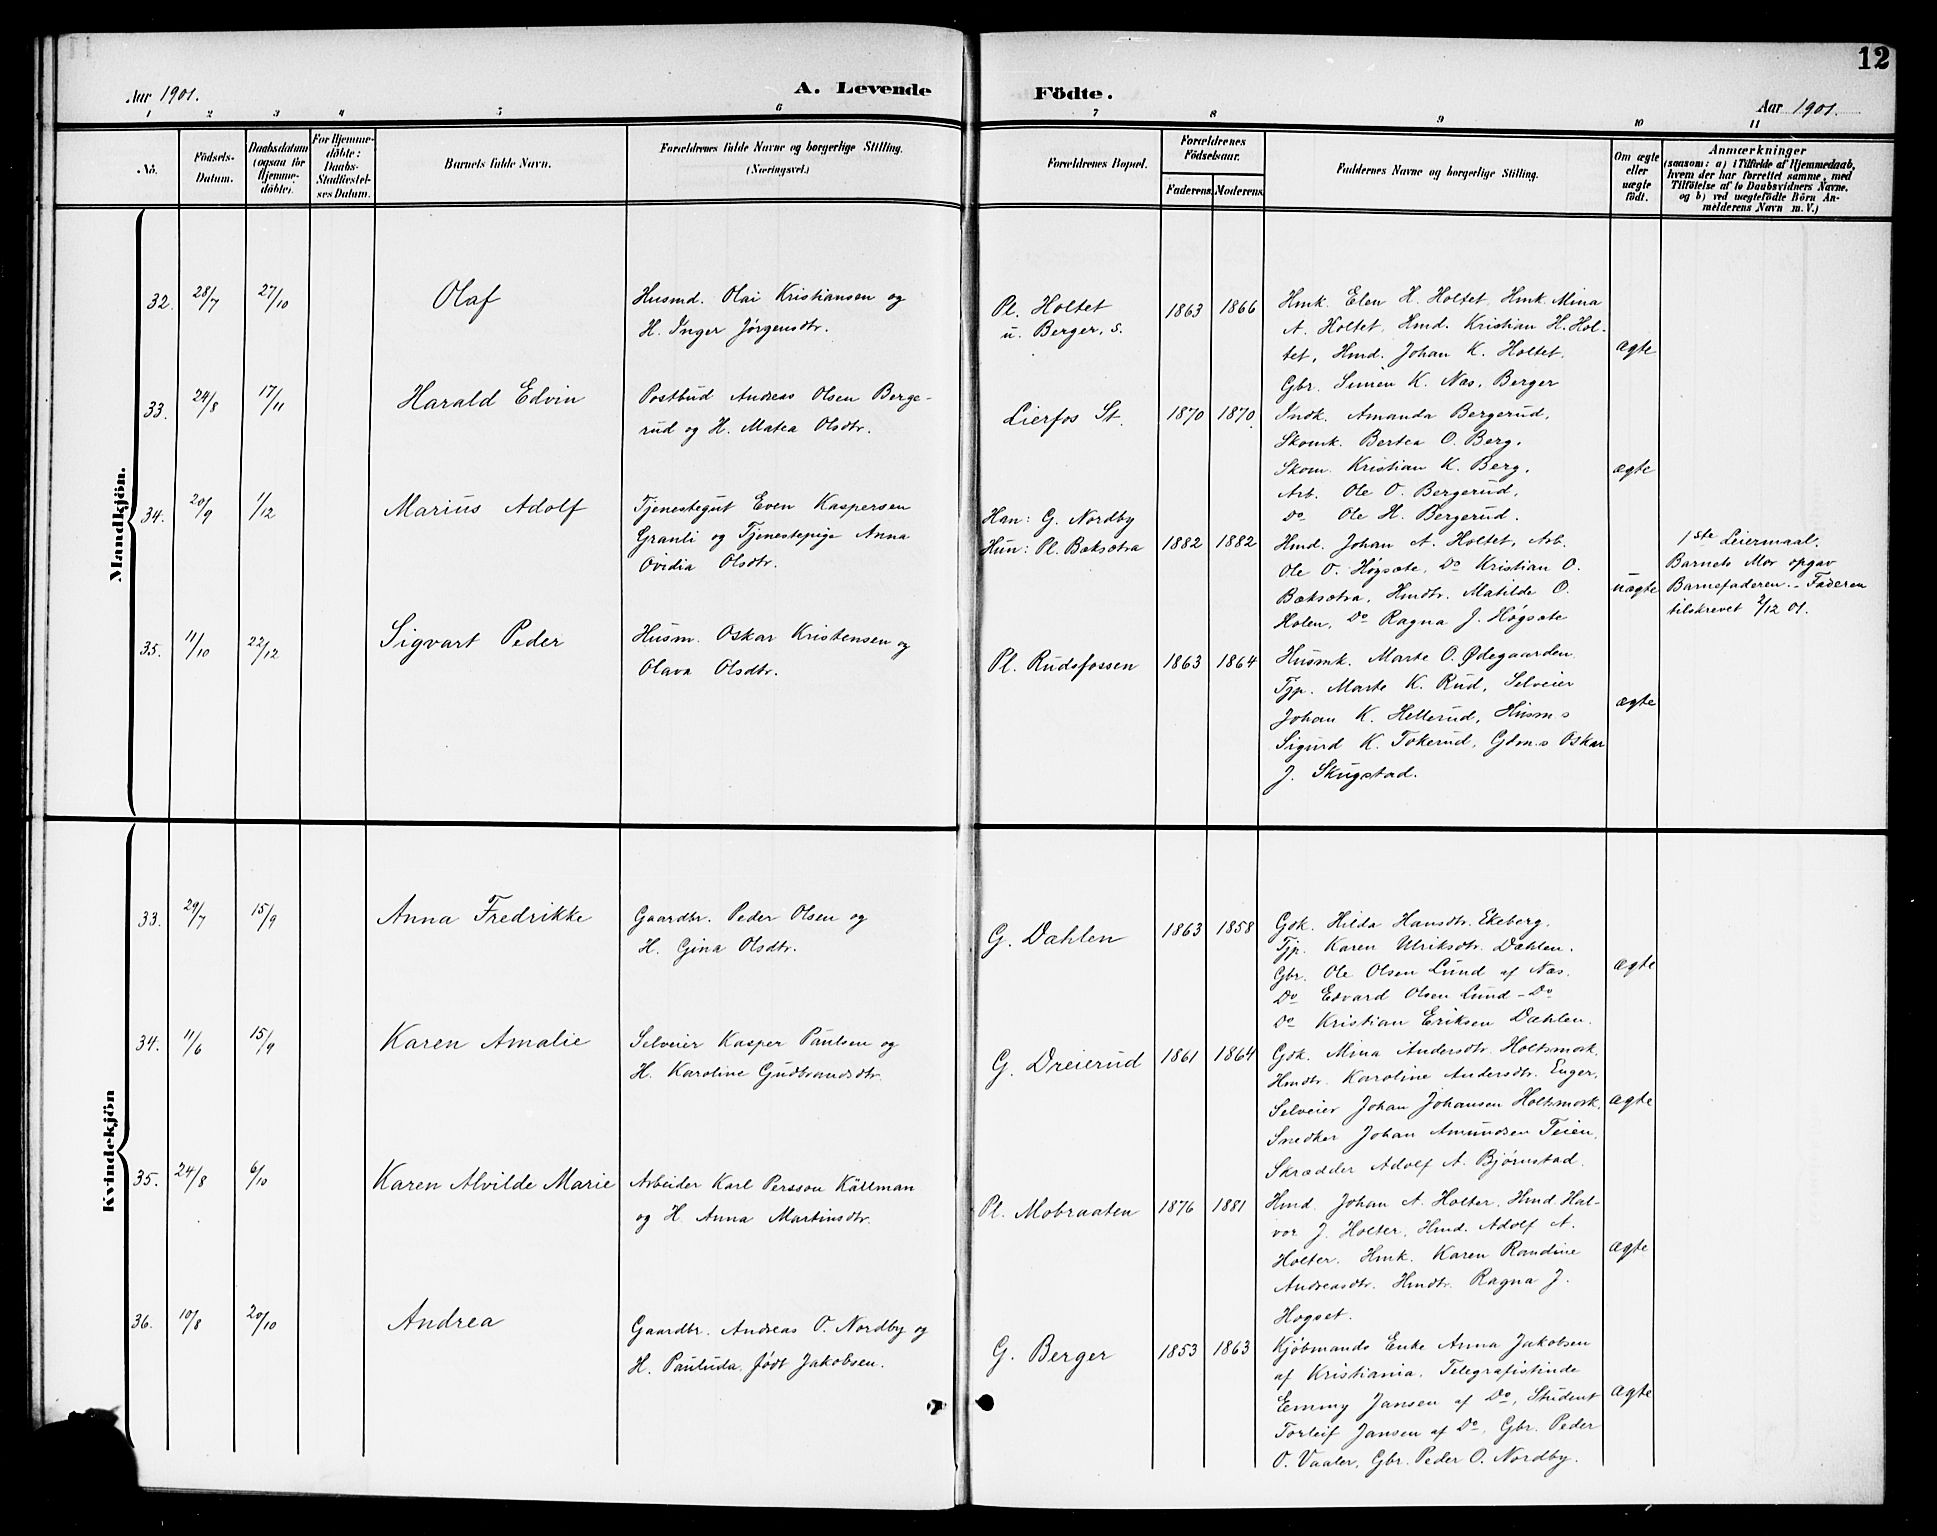 12
A. Levende Födte.
Aar 1901.
Aar 1901.
1 2 3 4 5 6 7 8 9 10 11
No.
Födsels-
Datum.
Daabsdatum
(ogsaa for
Hjemme-
döbte).
For Hjemme-
döbte:
Daabs-
Stadfæstel-
ses Datum.
Barnets fulde Navn.
Forældrenes fulde Navne og borgerlige Stilling.
(Næringsvei.)
Forældrenes Bopæl.
Forældrenes
Födselsaar.
Faderens. Moderens.
Faddernes Navne og borgerlige Stilling.
Om ægte
eller
uægte
födt.
Anmærkninger
(saasom: a) i Tilfælde af Hjemmedaab,
hvem der har forrettet samme, med
Tilföielse af to Daabsvidners Navne.
og b) ved uægtefödte Börn An-
melderens Navn m. V.)
Mandkjön.
32. 28/7 27/10 Olaf
Husmd. Olai Kristiansen og
H. Inger Jørgensdtr.
Pl. Holtet
u. Berger, s.
1863 1866
Hmk. Elen H. Holtet, Hmk. Mina
A. Holtet, Hmd. Kristian H. Hol-
tet, Hmd. Johan K. Holtet.
Gbr. Simen K. Nas, Berger
ægte
33. 24/8 17/11 Harald Edvin
Postbud Andreas Olsen Berge-
rud og H. Matea Olsdtr.
Lierfos St. 1870 1870.
Indk. Amanda Bergerud,
Skomk. Bertea O. Berg,
Skom. Kristian K. Berg,
Arb. Ole O. Bergerud,
Do Ole H. Bergerud.
ægte
34. 20/9 1/12 Marius Adolf
Tjenestegut Even Kaspersen
Granli og Tjenestepige Anna
Ovidia Olsdtr.
Han: G. Nordby
Hun: Pl. Bæksætra 1882 1882
Hmd. Johan A. Holtet, Arb.
Ole O. Høgsæte, Do Kristian O.
Bæksætra, Hmdtr. Matilde O.
Holen, Do Ragna J. Høgsæte
uægte
1ste Leiermaal.
Barnets Mor opgav
Barnefaderen. - Faderen
tilskrevet 2/12 01.
35. 11/10 22/12 Sigvart Peder
Husm. Oskar Kristensen og
Olava Olsdtr.
Pl. Rudsfossen 1863 1864
Husmk. Marte O. Ødegaarden.
Tjp. Marte K. Rud, Selveier
Johan K. Hellerud, Husm.s
Sigurd K. Tokerud, Gdm.s Oskar
J. Skugstad.
ægte
Kvindekjön
33. 29/7 15/9 Anna Fredrikke
Gaardbr. Peder Olsen og
H. Gina Olsdtr.
G. Dahlen 1863 1858
Gdk. Hilda Hansdtr. Ekeberg.
Tjp. Karen Ulriksdtr. Dahlen.
Gbr. Ole Olsen Lund af Nas.
Do Edvard Olsen Lund - Do
Do Kristian Eriksen Dahlen.
ægte
34. 11/6 15/9 Karen Amalie
Selveier Kasper Paulsen og
H. Karoline Gudbrandsdtr.
G. Dreierud 1861 1864
Gdk. Mina Andersdtr. Holtsmark.
Hmdtr. Karoline Andersdtr. Enger,
Selveier Johan Johansen Holtsmark,
Snedker Johan Amundsen Teien,
Skrædder Adolf A. Bjørnstad.
ægte
35. 24/8 6/10 Karen Alvilde Marie
Arbeider Karl Persson Källman
og H. Anna Martinsdtr.
Pl. Mobraaten 1876 1881
Hmd. Johan A. Holter. Hmd. Hal-
vor J. Holter, Hmd. Adolf A.
Holter. Hmk. Karen Randine
Andreasdtr. Hmdtr. Ragna J.
Høgset.
ægte
36. 10/8 20/10 Andrea
Gaardbr. Andreas O. Nordby og
H. Pauluda, født Jakobsen.
G. Berger 1853 1863
Kjøbmands Enke Anna Jakobsen
af Kristiania. Telegrafistinde
Emmy Jansen af Do, Student
Torleif Jansen af Do, Gbr. Peder
O. Vaaler, Gbr. Peder O. Nordby.
ægte